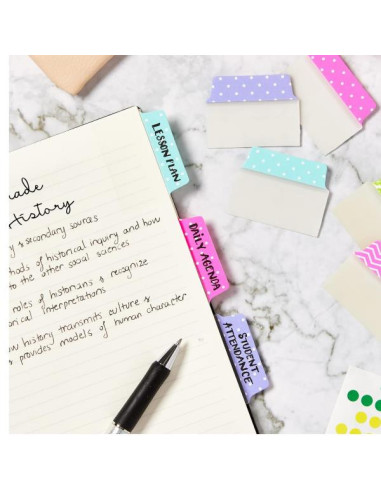 ade
History
y & secondary sources
hods of historical inquiry and how
to the other social sciences
roles of historians & recognize
orical interpretations
ow history transmits culture &
provides models of human character
LESSON PLAN
DAILY AGENDA
STUDENT
ATTENDANCE